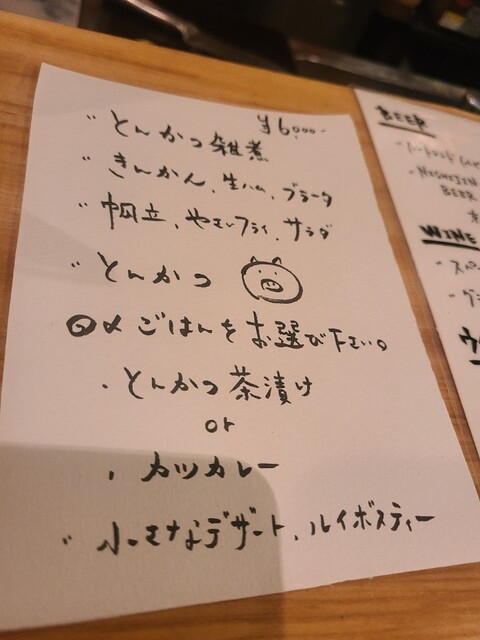 ¥6,000-
" とんかつ雑煮
" きんかん、生ハム、ブラータ
" 帆立、やさいフライ、サラダ
" とんかつ
◎〆ごはんをお選び下さい。
・とんかつ茶漬け
or
・カツカレー
" 小さなデザート、ルイボスティー
BEER
BEER
WINE